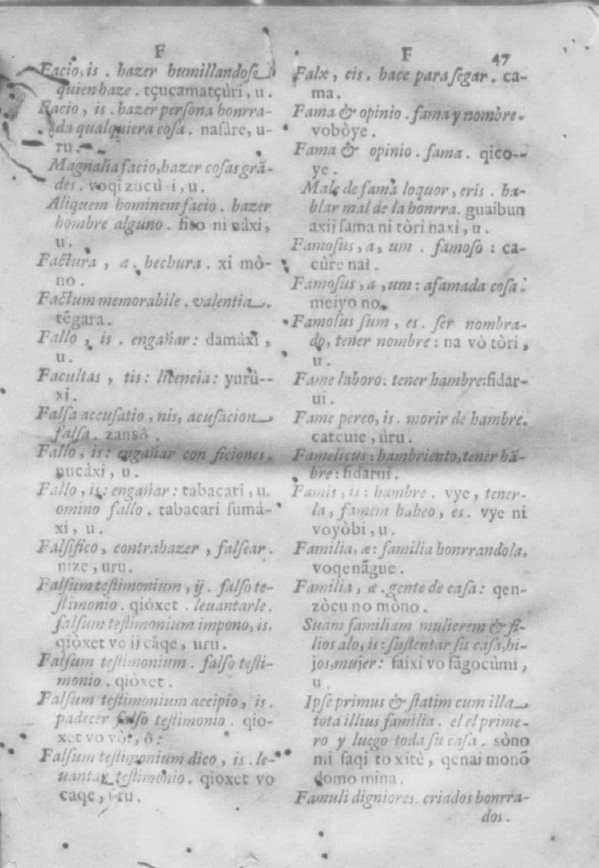 F
Facio, is. hazer humillandose
quien haze. tçucamatçúri, u.
Facio, is. hazer persona honrra-
da qualquiera cosa. nasáre, u-
ru.
Magnalia facio, hazer cosas grã-
des. voqi zucu i, u.
Aliquem hominem facio. hazer
hombre alguno. fito ni náxi,
u.
Factura, a. hechura. xi mò-
no.
Factum memorabile. valentia.
tēgara.
Fallo, is. engañar: damàxi,
u.
Facultas, tis: licencia: yurù--
xi.
Falsa accusatio, nis, acusacion
falsa. zansô.
Fallo, is: engañar con ficiones.
nucàxi, u.
Fallo, is: engañar: tabacari, u.
omino fallo. tabacari sumà-
xi, u.
Falsifico, contrahazer, falsear.
nize, uru.
Falsum testimonium, ij. falso te-
stimonio. qiòxet. leuantarle.
falsum testimonium impono, is.
qiòxet vo ij càqe, uru.
Falsum testimonium. falso testi-
monio. qiòxet.
Falsum testimonium accipio, is.
padecer falso testimonio. qio-
xet vo vòi, ô:
Falsum testimonium dico, is. le-
uantar testimonio. qioxet vo
caqe, uru.
F 47
Falx, cis. hace para segar. ca-
ma.
Fama & opinio. fama y nombre.
vobòye.
Fama & opinio. fama. qico--
ye.
Male de fama loquor, eris. ha-
blar mal de la honrra. guaibun
axij fama ni tòri naxi, u.
Famosus, a, um. famoso: ca-
cùre nai.
Famosus, a, um: afamada cosa:
meiyo no.
Famosus sum, es. ser nombra-
do, tener nombre: na vò tòri,
u.
Fame laboro: tener hambre: fidar-
ui.
Fame pereo, is. morir de hambre.
catcuie, úru.
Famelicus: hambriento, tener hã-
bre: fidarui.
Famis, is: hambre. vye, tener-
la, famem habeo, es. vye ni
voyòbi, u.
Familia, æ: familia honrrandola.
voqenãgue.
Familia, æ. gente de casa: qen-
zòcu no mòno.
Suam familiam mulierem & fi-
lios alo, is: sustentar su casa, hi-
jos, mujer: saixi vo fãgocùmi,
u.
Ipse primus & statim cum illa
tota illius familia. el el prime-
ro y luego toda su casa. sòno
mi saqi to xite, qenai monõ
domo mina.
Famuli digniores. criados honrra-
dos.